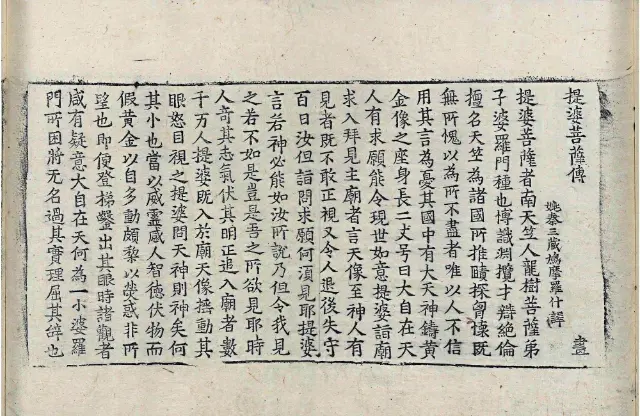 提婆菩薩傳
姚秦三藏鳩摩羅什譯 畫
提婆菩薩者南天竺人龍樹菩薩弟
子婆羅門種也博識淵攬才辯絕倫
擅名天竺為諸國所推賾探胷懷既
無所愧以為所不盡者唯以人不信
用其言為憂其國中有大天神鑄黃
金像之座身長二丈号曰大自在天
人有求願能令現世如意提婆詣廟
求入拜見主廟者言天像至神人有
見者既不敢正視又令人退後失守
百日汝但詣問求願何須見耶提婆
言若神必能如汝所說乃但令我見
之若不如是豈是吾之所欲見耶時
人奇其志氣伏其明正追入廟者數
千万人提婆既入於廟天像搖動其
眼怒目視之提婆問天神則神矣何
其小也當以威靈感人智德伏物而
假黃金以自多動頗梨以熒惑非所
望也即便登梯鑿出其眼時諸觀者
咸有疑意大自在天何為一小婆羅
門所困將无名過其實理屈其辭也